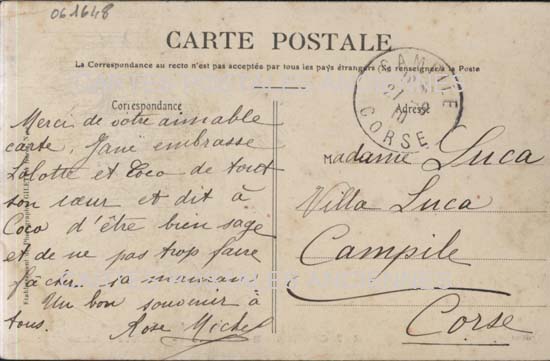 061648
CARTE POSTALE
La Correspondance au recto n'est pas acceptée par tous les pays étrangers (Se renseigner à la Poste
Correspondance
Merci de votre aimable
carte. Jane embrasse
Lolotte et Coco de tout
son cœur et dit à
Coco d'être bien sage
et de ne pas trop faire
fâcher sa maman
Un bon souvenir à
tous. Rose Michel
CAMPILE
21
10
CORSE
Adresse
Madame Luca
Villa Luca
Campile
Corse